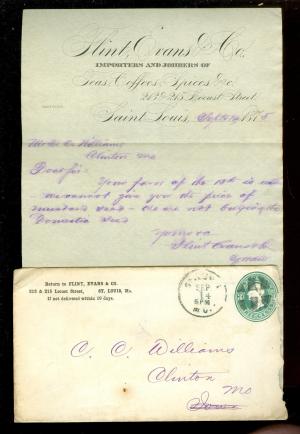 Flint, Evans & Co.
IMPORTERS AND JOBBERS OF
Teas, Coffees, Spices, &c.
213 & 215 Locust Street,
Saint Louis, Sept 14 187
C. C. Williams
Clinton Mo
Dear Sir:
Your favor of the 13th is
we cannot give you the price of
mustard seed - We are not buying the
Domestic Seed
Yours &c
Flint Evans & Co
Return to FLINT, EVANS & CO.
213 & 215 Locust Street, ST. LOUIS, Mo.
If not delivered within 10 days.
SEP
14
5PM
MO.
C. C. Williams
Clinton
Mo
Iowa